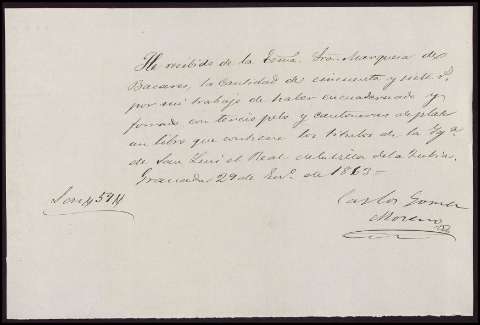 He recibido de la Exma. Sra. Marquesa de
Bacares, la Cantidad de cincuenta y siete
por mi trabajo de haber encuadernado y
forrado con terciopelo y cantoneras de plata
un libro que contiene los titulos de la Yg.ª
de San Luis el Real de la Villa de la Zubia.
Granada 29 de En.º de 1863=
Son 57
Carlos Gomez
Moreno